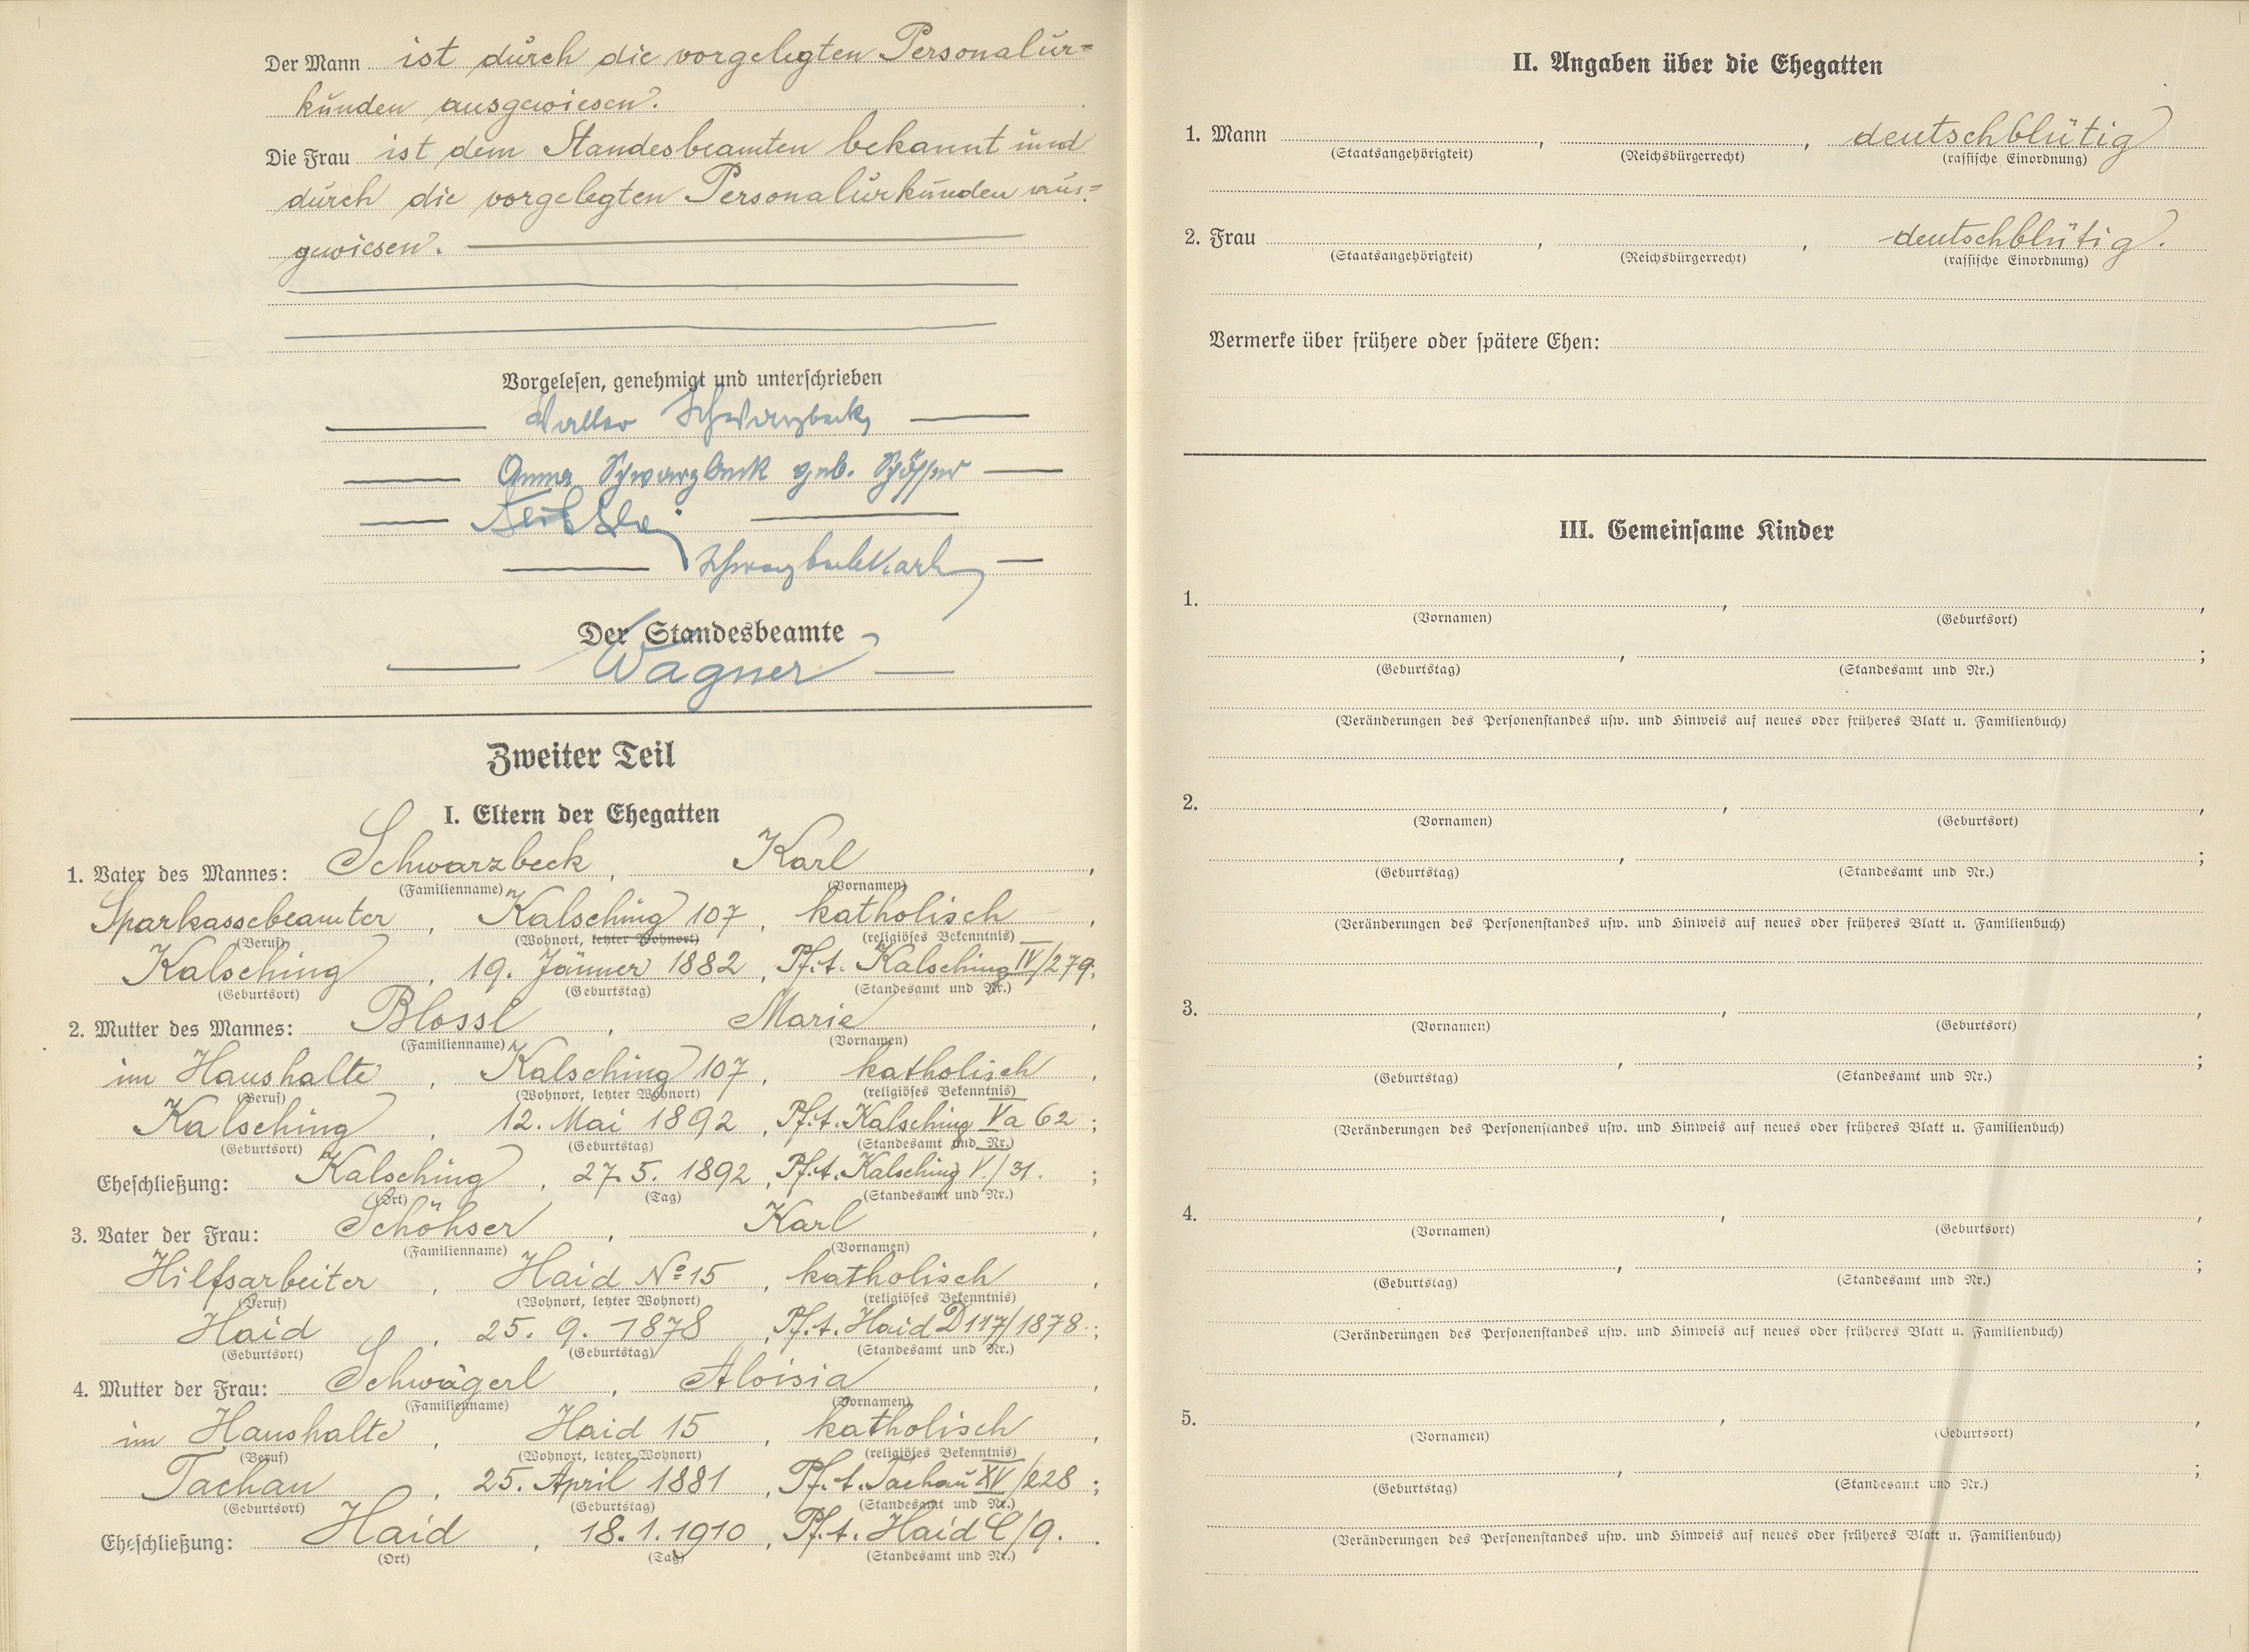 Der Mann ist durch die vorgelegten Personalur=
kunden ausgewiesen.
Die Frau ist dem Standesbeamten bekannt und
durch die vorgelegten Personalurkunden aus=
gewiesen.
Vorgelesen, genehmigt und unterschrieben
Walter Schwarzbeck
Anna Schwarzbeck geb. Schöhser
Schwarzbeck Karl
Der Standesbeamte
Wagner
Zweiter Teil
I. Eltern der Ehegatten
1. Vater des Mannes: Schwarzbeck, Karl,
(Familienname) (Vornamen)
Sparkassebeamter, Kalsching 107, katholisch,
(Beruf) (Wohnort, letzter Wohnort) (religiöses Bekenntnis)
Kalsching, 19. Jänner 1882, Pf.A. Kalsching IV/279;
(Geburtsort) (Geburtstag) (Standesamt und Nr.)
2. Mutter des Mannes: Blossl, Marie,
(Familienname) (Vornamen)
im Haushalte, Kalsching 107, katholisch,
(Beruf) (Wohnort, letzter Wohnort) (religiöses Bekenntnis)
Kalsching, 12. Mai 1892, Pf.A. Kalsching Va 62;
(Geburtsort) (Geburtstag) (Standesamt und Nr.)
Eheschließung: Kalsching, 27.5. 1892, Pf.A. Kalsching V/31.;
(Ort) (Tag) (Standesamt und Nr.)
3. Vater der Frau: Schöhser, Karl,
(Familienname) (Vornamen)
Hilfsarbeiter, Haid No 15, katholisch,
(Beruf) (Wohnort, letzter Wohnort) (religiöses Bekenntnis)
Haid, 25. 9. 1878, Pf.A. Haid D 117/1878;
(Geburtsort) (Geburtstag) (Standesamt und Nr.)
4. Mutter der Frau: Schwägerl, Aloisia,
(Familienname) (Vornamen)
im Haushalte, Haid 15, katholisch,
(Beruf) (Wohnort, letzter Wohnort) (religiöses Bekenntnis)
Tachau, 25. April 1881, Pf.A. Tachau XV/228;
(Geburtsort) (Geburtstag) (Standesamt und Nr.)
Eheschließung: Haid, 18.1.1910, Pf.A. Haid C/9.
(Ort) (Tag) (Standesamt und Nr.)
II. Angaben über die Ehegatten
1. Mann , , deutschblütig
(Staatsangehörigkeit) (Reichsbürgerrecht) (rassische Einordnung)
2. Frau , , deutschblütig.
(Staatsangehörigkeit) (Reichsbürgerrecht) (rassische Einordnung)
Vermerke über frühere oder spätere Ehen:
III. Gemeinsame Kinder
1. , ,
(Vornamen) (Geburtsort)
, ;
(Geburtstag) (Standesamt und Nr.)
(Veränderungen des Personenstandes usw. und Hinweis auf neues oder früheres Blatt u. Familienbuch)
2. , ,
(Vornamen) (Geburtsort)
, ;
(Geburtstag) (Standesamt und Nr.)
(Veränderungen des Personenstandes usw. und Hinweis auf neues oder früheres Blatt u. Familienbuch)
3. , ,
(Vornamen) (Geburtsort)
, ;
(Geburtstag) (Standesamt und Nr.)
(Veränderungen des Personenstandes usw. und Hinweis auf neues oder früheres Blatt u. Familienbuch)
4. , ,
(Vornamen) (Geburtsort)
, ;
(Geburtstag) (Standesamt und Nr.)
(Veränderungen des Personenstandes usw. und Hinweis auf neues oder früheres Blatt u. Familienbuch)
5. , ,
(Vornamen) (Geburtsort)
, ;
(Geburtstag) (Standesamt und Nr.)
(Veränderungen des Personenstandes usw. und Hinweis auf neues oder früheres Blatt u. Familienbuch)